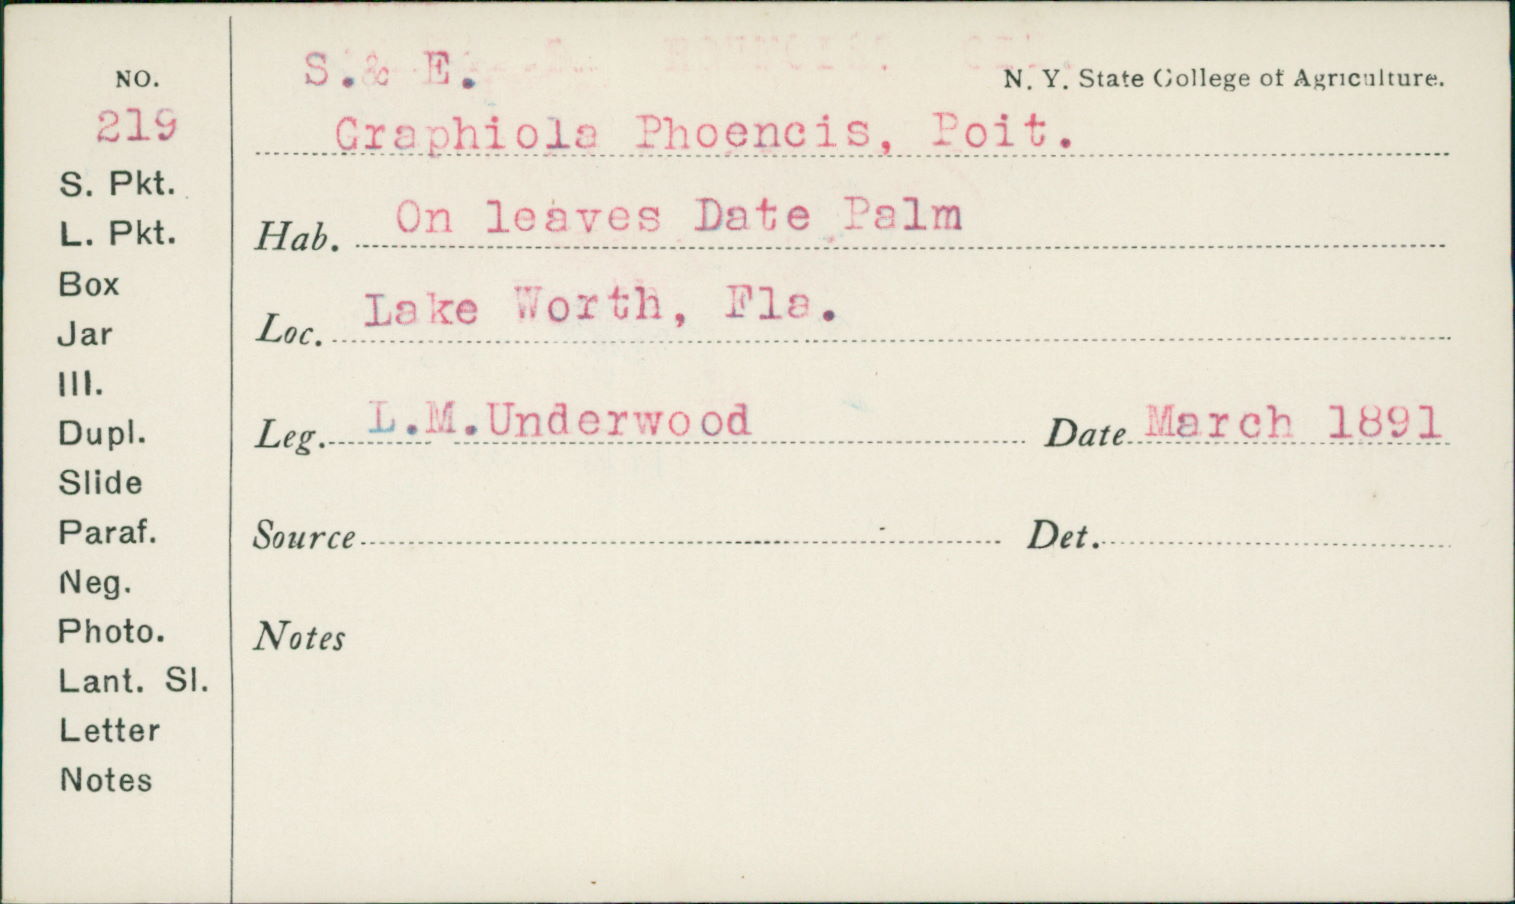 NO.
219
S. Pkt.
L. Pkt.
Box
Jar
Ill.
Dupl.
Slide
Paraf.
Neg.
Photo.
Lant. Sl.
Letter
Notes
S.& E.
N. Y. State College of Agriculture.
Graphiola Phoencis, Poit.
Hab. On leaves Date Palm
Loc. Lake Worth, Fla.
Leg. L.M.Underwood Date March 1891
Source Det.
Notes